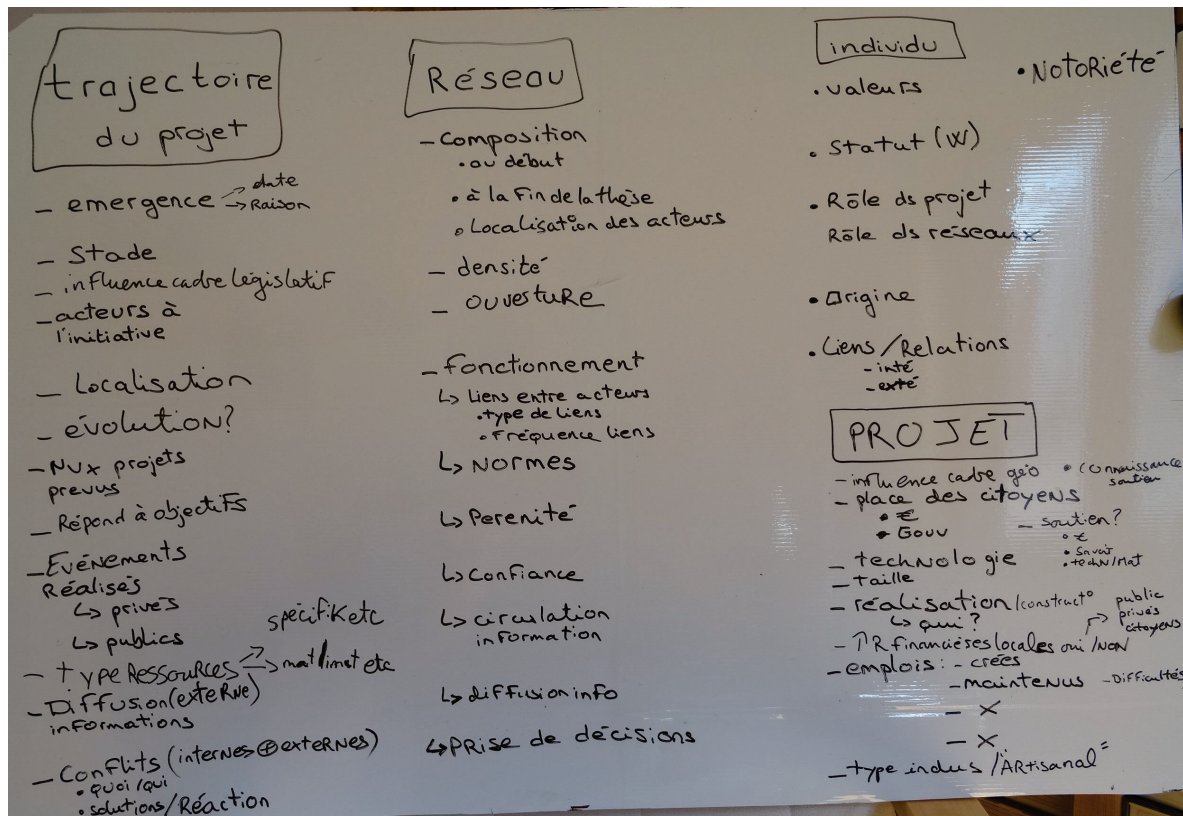 trajectoire
du projet
- emergence → date
→ Raison
- Stade
- influence cadre législatif
- acteurs à
l'initiative
- Localisation
- évolution?
- Nvx projets
prevus
- Répond à objectifs
- Evénements
Réalisés
↳ privés
↳ publics
- type Ressources → spécifik etc
→ mat/imat etc
- Diffusion (externe)
informations
- Conflits (internes ⊕ externes)
• quoi/qui
• solutions/Réaction
Réseau
- Composition
• au début
• à la fin de la thèse
• Localisat° des acteurs
- densité
- ouverture
- Fonctionnement
↳ Liens entre acteurs
• type de liens
• Fréquence liens
↳ Normes
↳ Perenité
↳ Confiance
↳ circulation
information
↳ diffusion info
↳ Prise de décisions
individu
• Notoriété
• valeurs
• Statut (W)
• Rôle ds projet
Rôle ds réseaux
• Origine
• Liens/Relations
- inté
- exté
PROJET
- influence cadre géo
• connaissance
soutien
- place des citoyens
• €
• Gouv
- soutien?
• €
• Savoir
• techn/Mat
- technologie
- taille
- réalisation/construct°
↳ qui?
→ public
privés
citoyens
- ↑ R financières locales oui/NON
- emplois: - crées
- maintenus
- Difficultés
- X
- X
- type indus/Artisanal